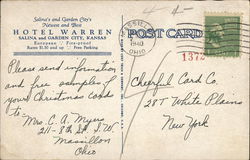 Salina's and Garden City's
Newest and Best
HOTEL WARREN
SALINA and GARDEN CITY, KANSAS
European Fire-proof
Rates $1.50 and up Free Parking
Please send information
and free samples of
your Christmas cards
to
Mrs. C. A. Myers
211-8th St. S.W.
Massillon
Ohio
MASSILLON
1940
OHIO
POST CARD
1372
Cheerful Card Co.
28T White Plains
New York